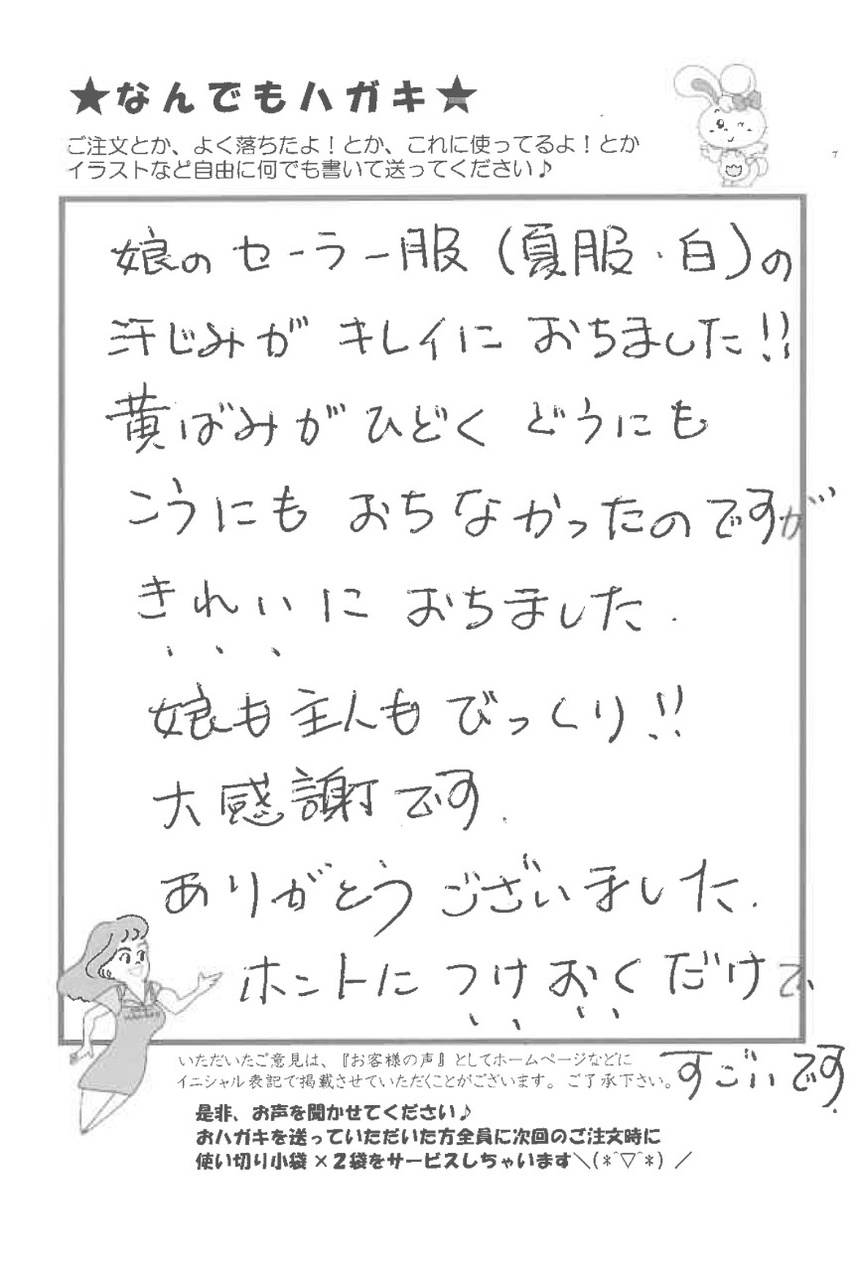 ★なんでもハガキ★
ご注文とか、よく落ちたよ！とか、これに使ってるよ！とか
イラストなど自由に何でも書いて送ってください♪
娘の セーラー服（夏服・白）の
汗じみが キレイに おちました!!
黄ばみが ひどく どうにも
こうにも おちなかったのですが
きれいに おちました.
娘も主人も びっくり!!
大感謝です.
ありがとう ございました.
ホントに つけおくだけで、
すごいです.
いただいたご意見は、『お客様の声』としてホームページなどに
イニシャル表記で掲載させていただくことがございます。ご了承下さい。
是非、お声を聞かせてください♪
おハガキを送っていただいた方全員に次回のご注文時に
使い切り小袋×2袋をサービスしちゃいます＼(*^▽^*)／